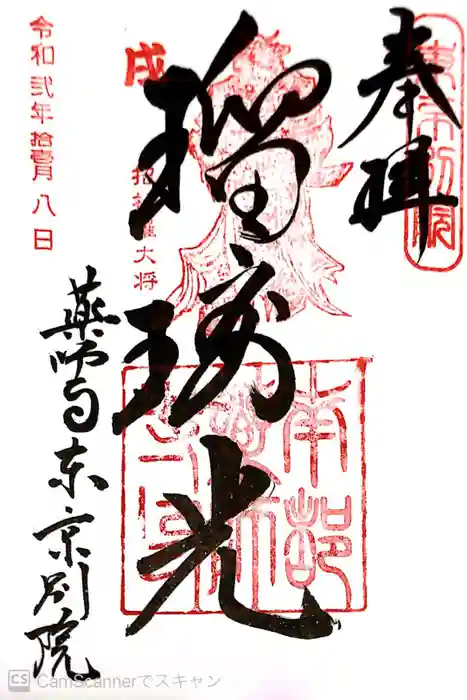 奉拝
瑠璃光
戌
招杜羅大将
令和弐年拾壹月八日
薬師寺東京別院
東京別院
南都
CS CamScannerでスキャン